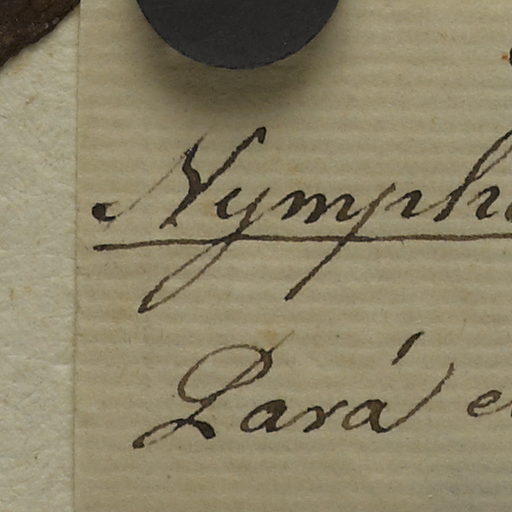 Nymph
Pará e